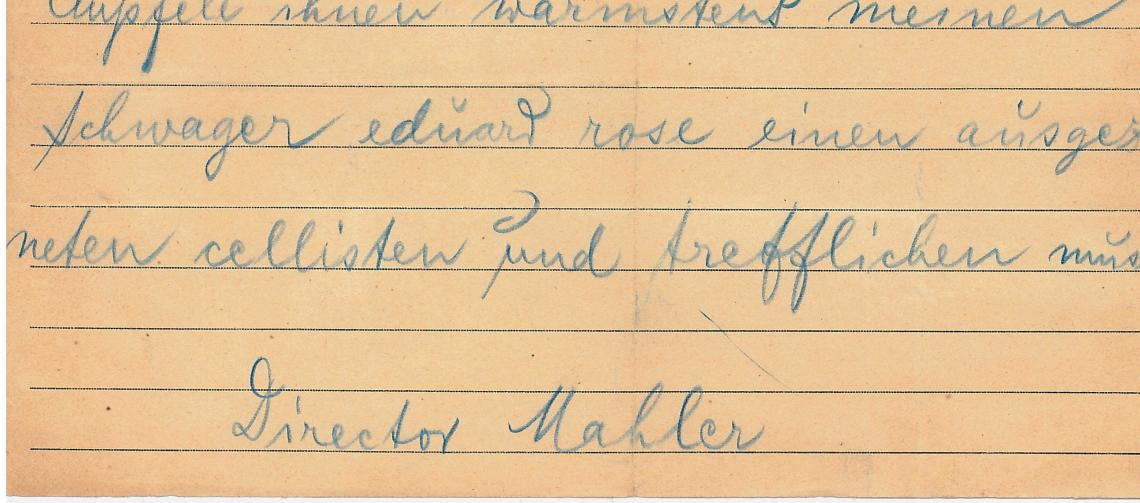 empfele ihnen wärmstens meinen
schwager eduard rose einen ausger
neten cellisten und trefflichen mus
Director Mahler